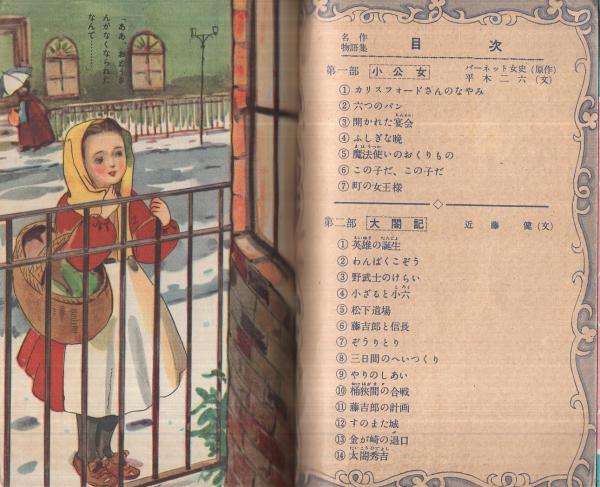 「ああ、おとうさ
んがなくなられた
なんて………
名作
物語集
目次
第一部 小公女 バーネット女史(原作)
平木二六(文)
① カリスフォードさんのなやみ
② 六つのパン
③ 開かれた宴会
④ ふしぎな晩
⑤ 魔法使いのおくりもの
⑥ この子だ、この子だ
⑦ 町の女王様
第二部 大閤記 近藤健(文)
① 英雄の誕生
② わんぱくこぞう
③ 野武士のけらい
④ 小ざると小六
⑤ 松下道場
⑥ 藤吉郎と信長
⑦ ぞうりとり
⑧ 三日間のへいつくり
⑨ やりのしあい
⑩ 桶狭間の合戦
⑪ 藤吉郎の計画
⑫ すのまた城
⑬ 金が崎の退口
⑭ 太閤秀吉